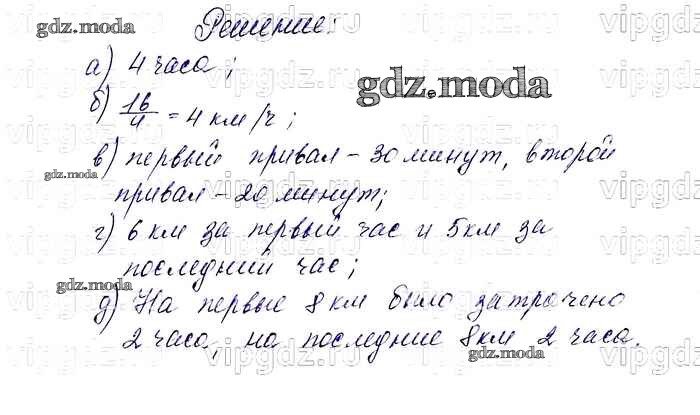 Решение:
gdz.moda
а) 4 часа;
gdz.moda
б) 16/4 = 4 км/ч;
в) первый привал – 30 минут, второй
gdz.moda
привал – 20 минут;
г) 6 км за первый час и 5 км за
последний час;
gdz.moda
д) На первые 8 км было затрачено
2 часа, на последние 8 км 2 часа.
gdz.moda
vipgdz.ru